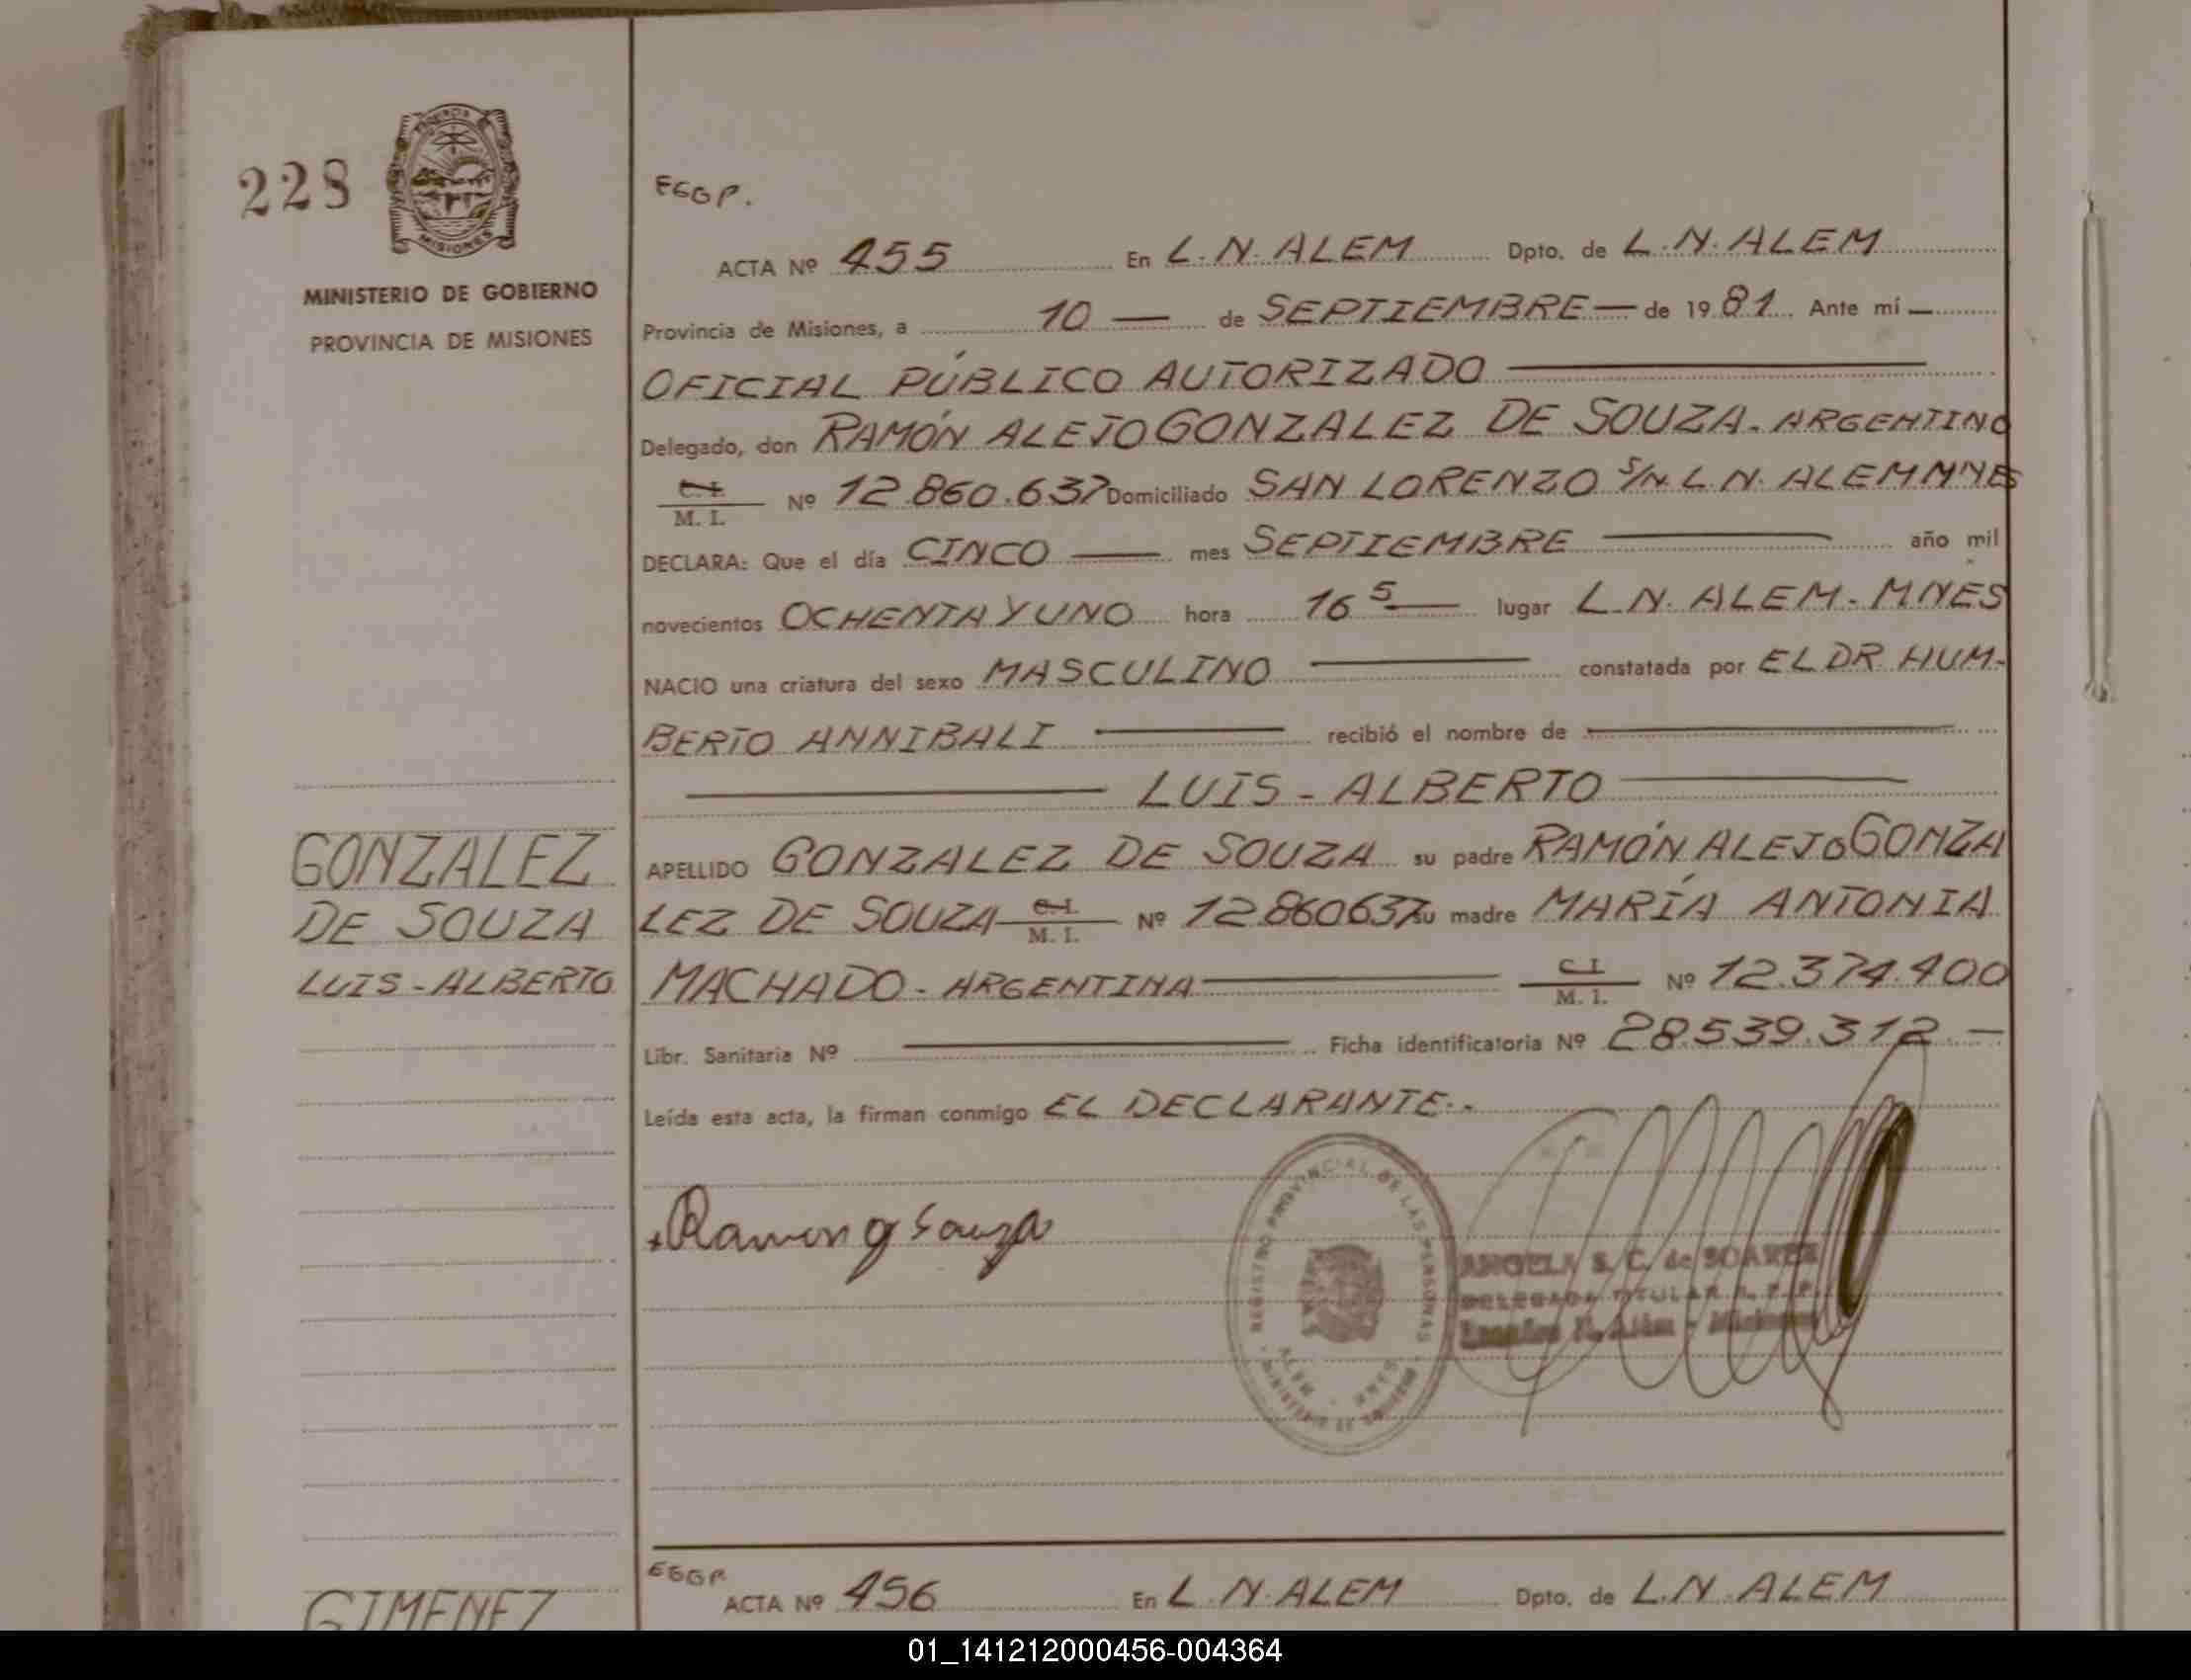 228
MISIONES
MINISTERIO DE GOBIERNO
PROVINCIA DE MISIONES
EGGP.
ACTA Nº 455 En L.N. ALEM Dpto. de L.N. ALEM
Provincia de Misiones, a 10 — de SEPTIEMBRE — de 1981. Ante mí —
OFICIAL PÚBLICO AUTORIZADO
Delegado, don RAMÓN ALEJO GONZALEZ DE SOUZA. ARGENTINO
C.I. / M. I. Nº 12.860.637 Domiciliado SAN LORENZO S/N L.N. ALEM MNES
DECLARA: Que el día CINCO — mes SEPTIEMBRE — año mil
novecientos OCHENTA Y UNO hora 16 5 — lugar L.N. ALEM - MNES
NACIO una criatura del sexo MASCULINO — constatada por EL DR HUM-
BERTO ANNIBALI — recibió el nombre de —
— LUIS - ALBERTO —
GONZALEZ
DE SOUZA
LUIS - ALBERTO
APELLIDO GONZALEZ DE SOUZA su padre RAMÓN ALEJO GONZA
LEZ DE SOUZA — C.I. / M. I. Nº 12.860637 su madre MARÍA ANTONIA
MACHADO - ARGENTINA — C.I. / M. I. Nº 12.374.400
Libr. Sanitaria Nº — Ficha identificatoria Nº 28.539.312 —
Leída esta acta, la firman conmigo EL DECLARANTE.-
Ramon g Souza
REGISTRO PROVINCIAL DE LAS PERSONAS
ALEM - MNES
MINISTERIO DE GOBIERNO
ANGELA S. C. de SOAREZ
DELEGADA TITULAR R. P. P.
Leandro N. Alem - Misiones
EGGP
ACTA Nº 456 En L.N. ALEM Dpto. de L.N. ALEM
GIMENEZ
01_141212000456-004364